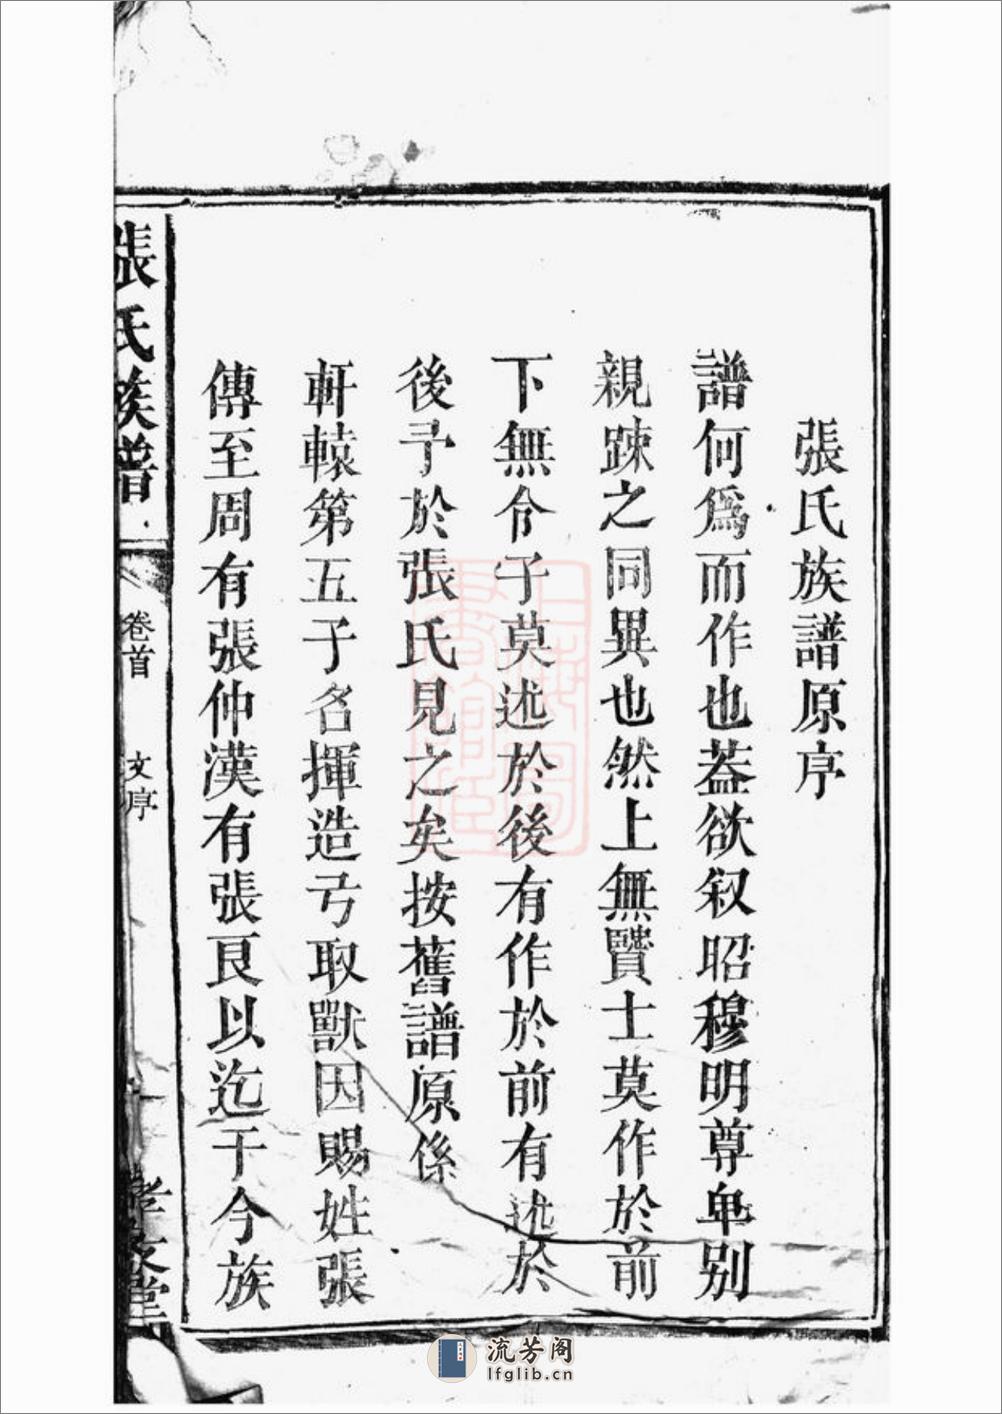 張氏族譜原序
譜何爲而作也葢欲叙昭穆明尊卑别
親踈之同異也然上無賢士莫作於前
下無令子莫述於後有作於前有述於
後予於張氏見之矣按舊譜原係
軒轅第五子名揮造弓取獸因賜姓張
傳至周有張仲漢有張良以迄于今族
張氏族譜
卷首
文序
流芳阁
lfglib.cn